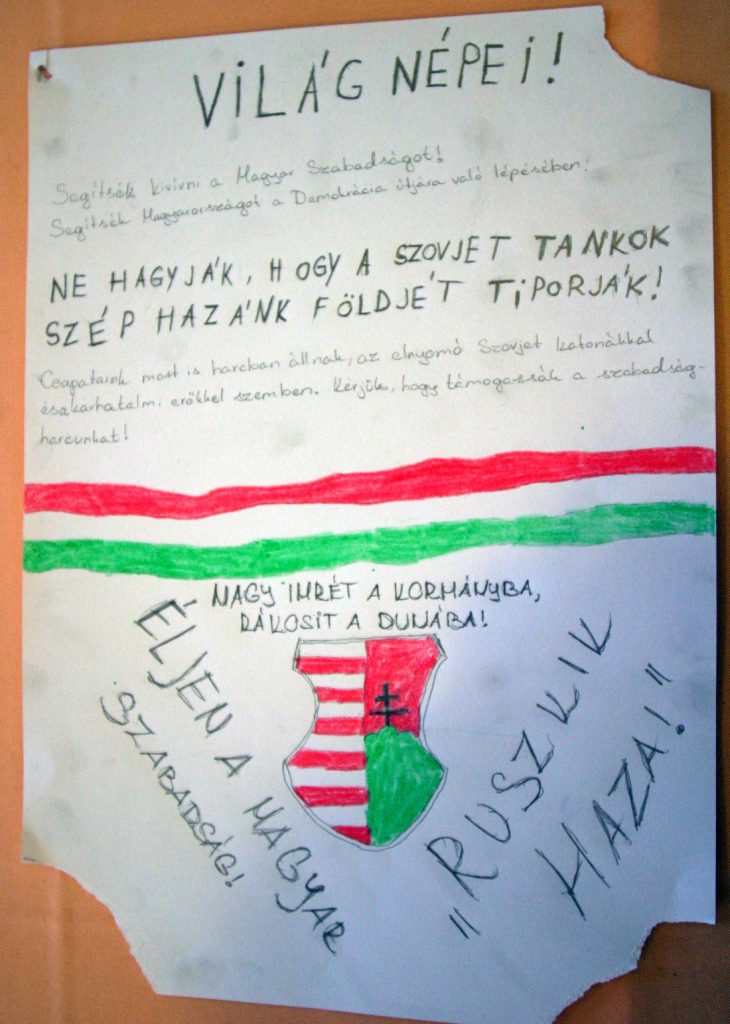 VILÁG NÉPEI!
Segítsék kivívni a Magyar Szabadságot!
Segítsék Magyarországot a Demokrácia útjára való lépésében!
NE HAGYJÁK, HOGY A SZOVJET TANKOK
SZÉP HAZÁNK FÖLDJÉT TIPORJÁK!
Csapataink most is harcban állnak, az elnyomó Szovjet katonákkal
és a karhatalmi erőkkel szemben. Kérjük, hogy támogassák a szabadság-
harcunkat!
NAGY IMRÉT A KORMÁNYBA,
RÁKOSIT A DUNÁBA!
ÉLJEN A MAGYAR
SZABADSÁG!
„RUSZKIK
HAZA!"